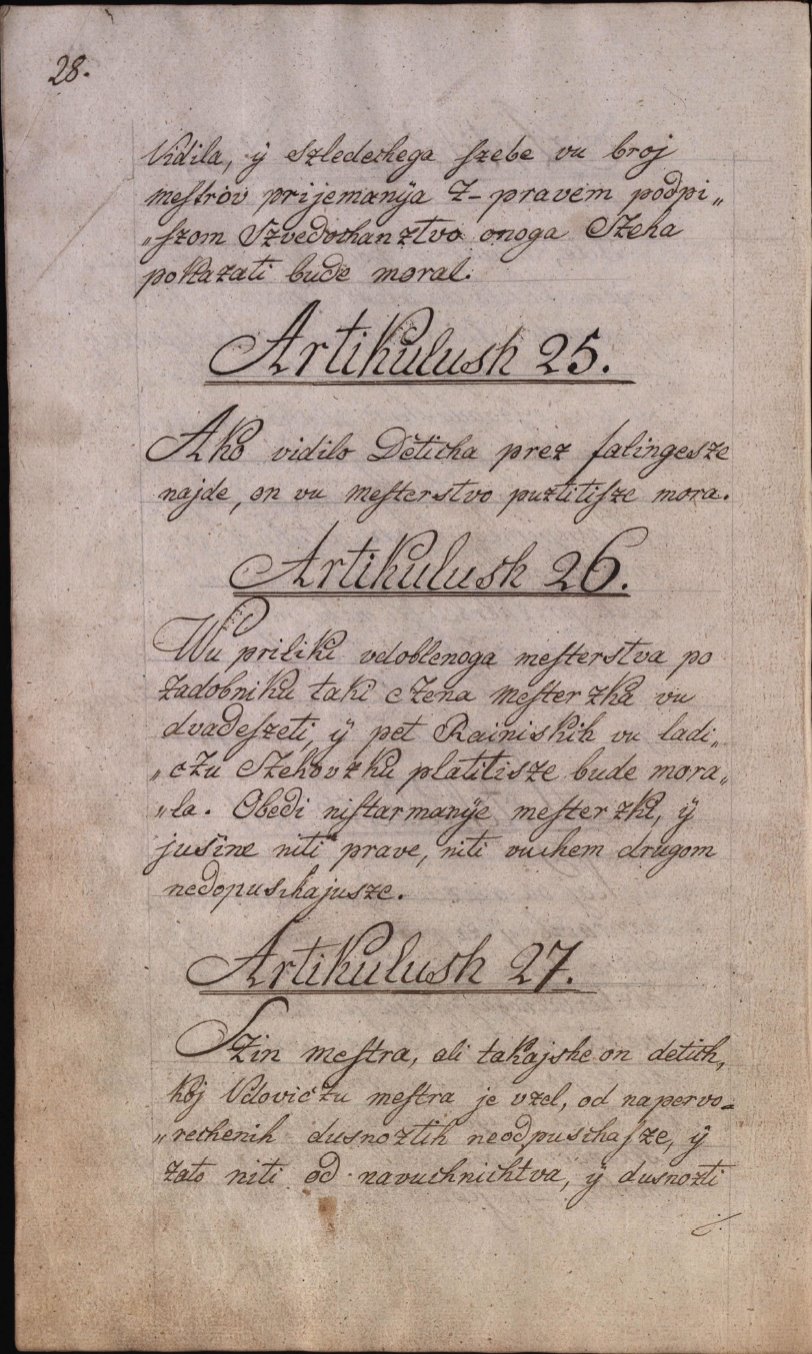 28.
Vidila, ÿ szledechega szebe vu broj
mestrov prijemanÿa Z- pravem podpi„
„szom Szvedochanztvo onoga Czeha
pokazati bude moral.
Artikulush 25.
Ako vidilo Deticha prez falingesze
najde, on vu mesterstvo puztitisze mora.
Artikulush 26.
Wu priliki vdoblenoga mesterstva po
zadobniku taki cžena mesterzka vu
dvadeszeti ÿ pet Rainiskih vu ladi„
„cžu Czehovzku platitisze bude mora„
„la. Obedi nistarmanÿe mesterzki, ÿ
jusine niti prave, niti vuchem drugom
nedopuschajusze.
Artikulush 27.
Szin mestra, ali takajshe on detich,
koj Vdovicžu mestra je vzel, od napervo=
„rechenih dusnoztih neodpuschasze, ÿ
zato niti od navuchnichtva, ÿ dusnozti